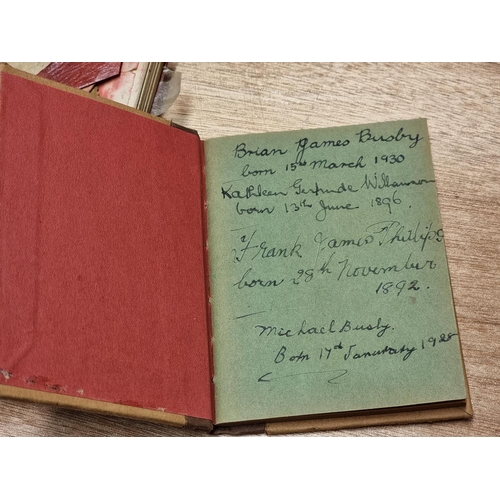 Brian James Busby
born 15th March 1930
Kathleen Gertrude Williamson
born 13th June 1896.
Frank James Phillips
born 28th November
1892.
Michael Busby.
Born 17th January 1928